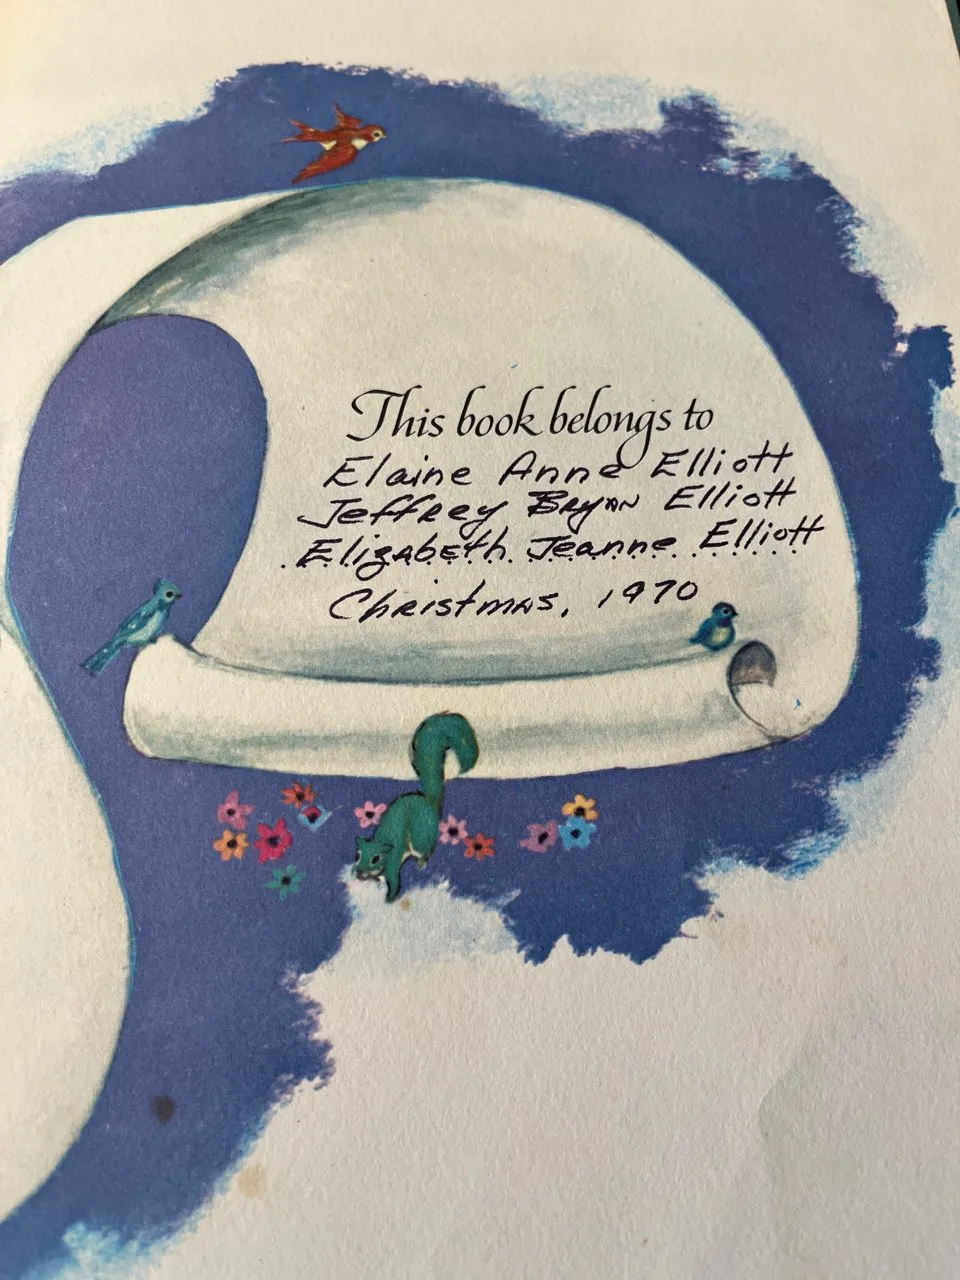 This book belongs to
Elaine Anne Elliott
Jeffrey Bryan Elliott
Elizabeth Jeanne Elliott
Christmas, 1970